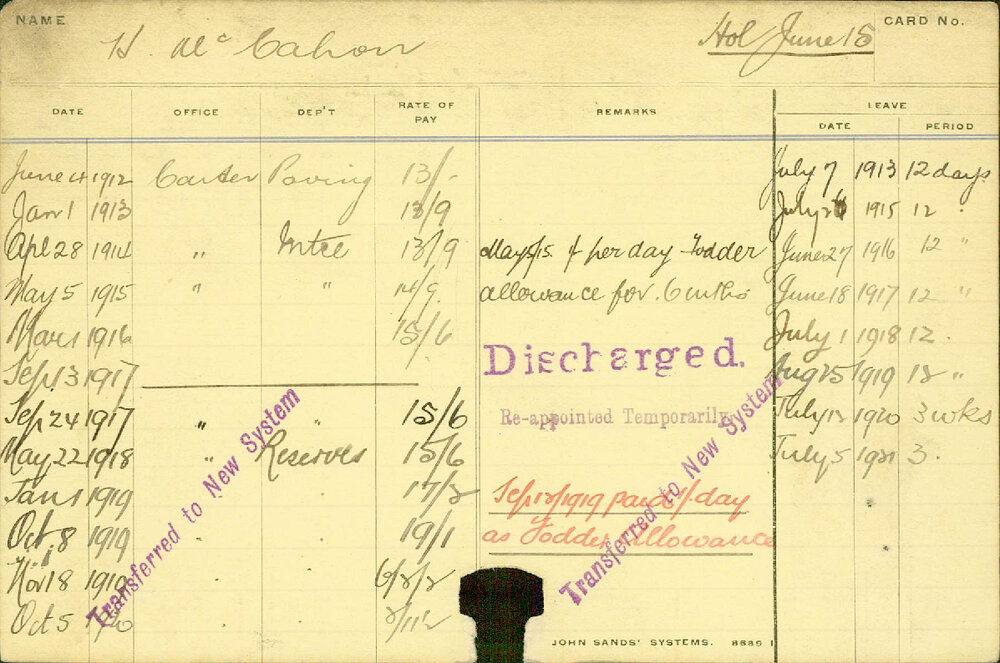 NAME H. McCahon Hol June 18 CARD No.
DATE OFFICE DEP'T RATE OF PAY REMARKS LEAVE
DATE PERIOD
June 4 1912 Carter Paving 13/- July 7 1913 12 days
Jan 1 1913 13/9 July 26 1915 12 "
Apl 28 1914 " Mtce 13/9 May 5/15. 1/ per day Fodder June 27 1916 12 "
May 5 1915 " " 14/9. allowance for 6 mths June 18 1917 12 "
Mar 1 1916 15/6 July 1 1918 12.
Discharged.
Sep. 13 1917 Aug 25 1919 12 "
Sep 24 1917 " " 15/6 Re-appointed Temporarily July 12 1920 3 wks
May 22 1918 " Reserves 15/6 July 5 1921 3.
Jan 1 1919 17/2 Sep 12/1919 paid 1/ day
Oct. 8 1919 19/1 as Fodder allowance
Nov 18 1919
Oct 5 1920
Transferred to New System
Transferred to New System
JOHN SANDS' SYSTEMS. 8689